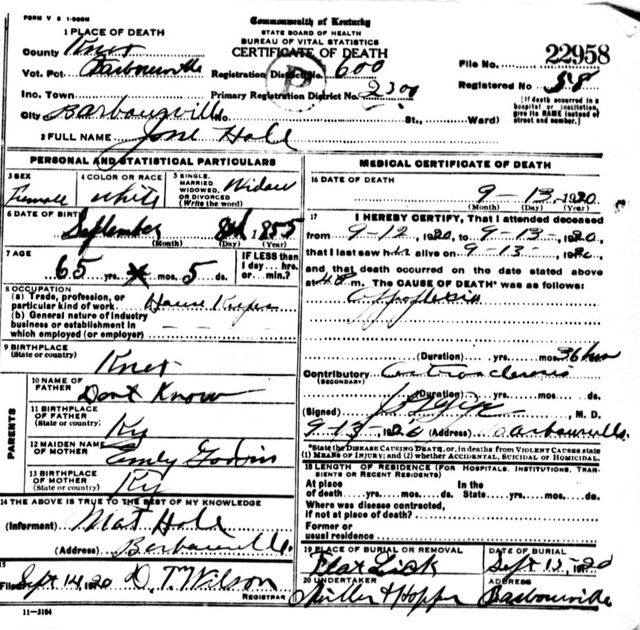 FORM V S 1-500M
Commonwealth of Kentucky
STATE BOARD OF HEALTH
BUREAU OF VITAL STATISTICS
CERTIFICATE OF DEATH
1 PLACE OF DEATH
County Knox
Vot. Pct. Barbourville
Inc. Town
City Barbourville No. St., Ward)
Registration District No. 600
Primary Registration District No. 2300
File No. 22958
Registered No. 58
(If death occurred in a hospital or institution, give its NAME instead of street and number.)
2 FULL NAME Jane Hale
PERSONAL AND STATISTICAL PARTICULARS
3 SEX
Female
4 COLOR OR RACE
White
5 SINGLE, MARRIED, WIDOWED, OR DIVORCED (Write the word)
Widow
6 DATE OF BIRTH
September 8th 1855
(Month) (Day) (Year)
7 AGE
65 yrs. mos. 5 ds.
IF LESS than 1 day... hrs. or min.?
8 OCCUPATION
(a) Trade, profession, or particular kind of work House Keeper
(b) General nature of industry business or establishment in which employed (or employer)
9 BIRTHPLACE
(State or country)
Knox
PARENTS
10 NAME OF FATHER
Dont Know
11 BIRTHPLACE OF FATHER
(State or country)
Ky
12 MAIDEN NAME OF MOTHER
Emly
13 BIRTHPLACE OF MOTHER
(State or country)
Ky
14 THE ABOVE IS TRUE TO THE BEST OF MY KNOWLEDGE
(Informant) Mat Hale
(Address) Barbourville
15
Filed Sept 14, 1920 D. T. Wilson
REGISTRAR
11-3184
MEDICAL CERTIFICATE OF DEATH
16 DATE OF DEATH
9-13-1920
(Month) (Day) (Year)
17 I HEREBY CERTIFY, That I attended deceased
from 9-12, 1920, to 9-13-, 1920,
that I last saw her alive on 9-13-, 1920
and that death occurred on the date stated above
at m. The CAUSE OF DEATH* was as follows:
(Duration) yrs. mos. 36 hrs
Contributory
(SECONDARY)
(Duration) yrs. mos. ds.
(Signed) , M. D.
9-13-1920 (Address) Barbourville
*State the DISEASE CAUSING DEATH, or, in deaths from VIOLENT CAUSES state (1) MEANS OF INJURY; and (2) whether ACCIDENTAL, SUICIDAL or HOMICIDAL.
18 LENGTH OF RESIDENCE (FOR HOSPITALS, INSTITUTIONS, TRANSIENTS OR RECENT RESIDENTS)
At place of death yrs. mos. ds.
In the State yrs. mos. ds.
Where was disease contracted, if not at place of death?
Former or usual residence
19 PLACE OF BURIAL OR REMOVAL
Flat Lick
DATE OF BURIAL
Sept 15, 1920
20 UNDERTAKER
Miller & Hopper
ADDRESS
Barbourville